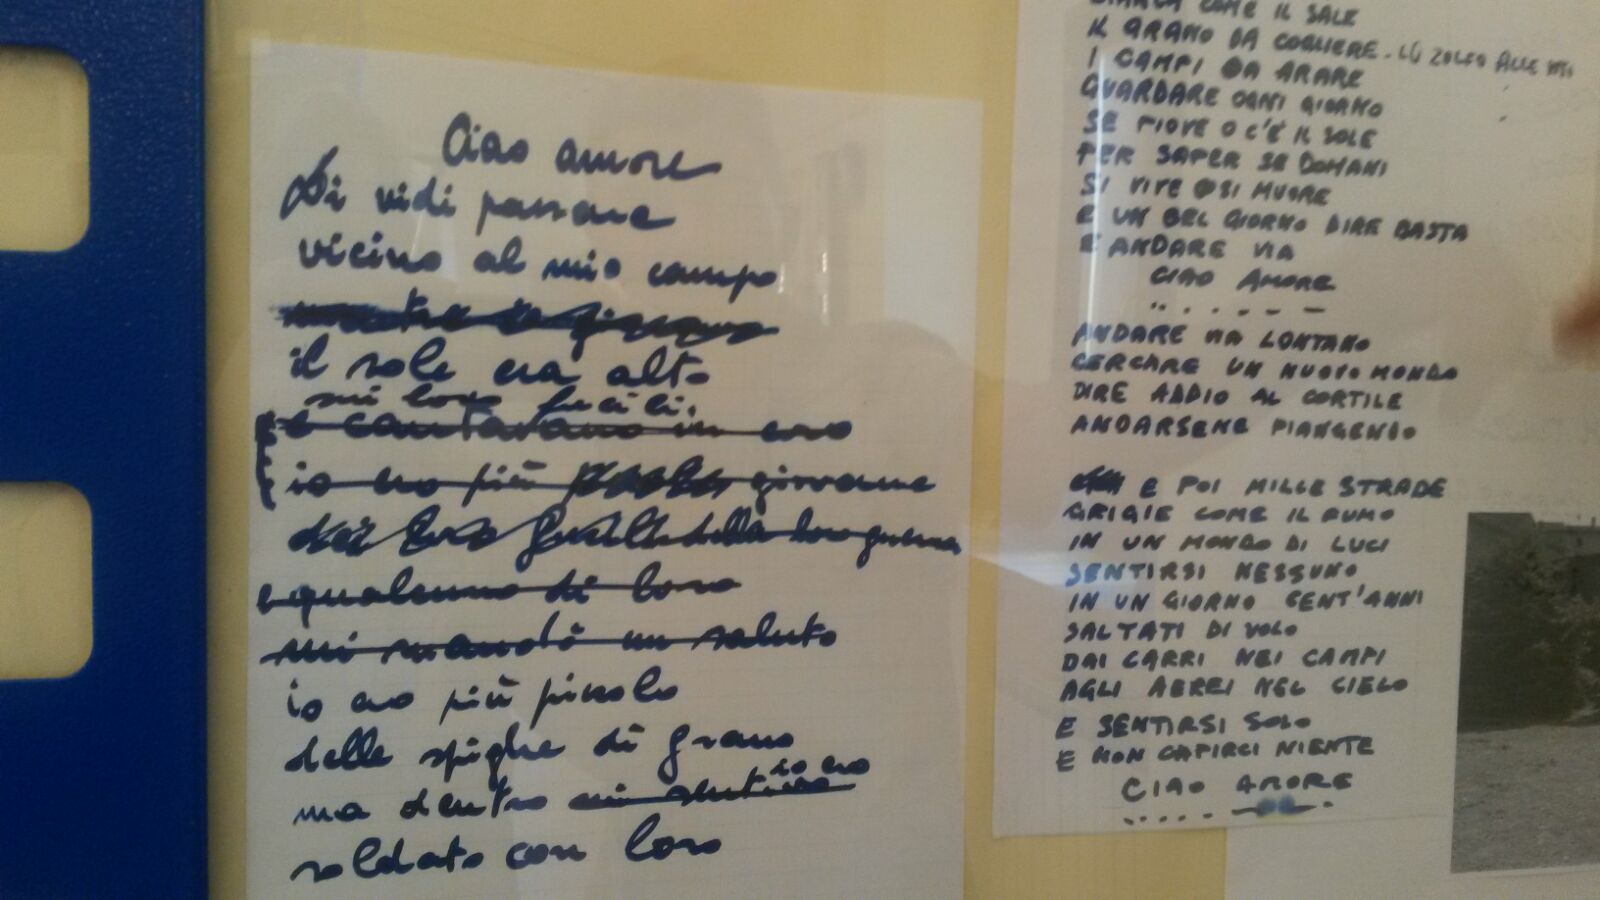 Ciao amore
Li vidi passare
vicino al mio campo
il sole era alto
sui loro fucili.
e cantavano in coro
io ero più giovane
della loro guerra
e qualcuno di loro
mi mandò un saluto
io ero più piccolo
delle spighe di grano
ma dentro io ero
soldato con loro
BIANCA COME IL SALE
IL GRANO DA COGLIERE - LO ZOLFO ALLE
I CAMPI DA ARARE
GUARDARE OGNI GIORNO
SE PIOVE O C'È IL SOLE
PER SAPER SE DOMANI
SI VIVE O SI MUORE
E UN BEL GIORNO DIRE BASTA
E ANDARE VIA
CIAO AMORE
ANDARE VIA LONTANO
CERCARE UN NUOVO MONDO
DIRE ADDIO AL CORTILE
ANDARSENE PIANGENDO
E POI MILLE STRADE
GRIGIE COME IL FUMO
IN UN MONDO DI LUCI
SENTIRSI NESSUNO
IN UN GIORNO CENT'ANNI
SALTATI DI VOLO
DAI CARRI NEI CAMPI
AGLI AEREI NEL CIELO
E SENTIRSI SOLO
E NON CAPIRCI NIENTE
CIAO AMORE